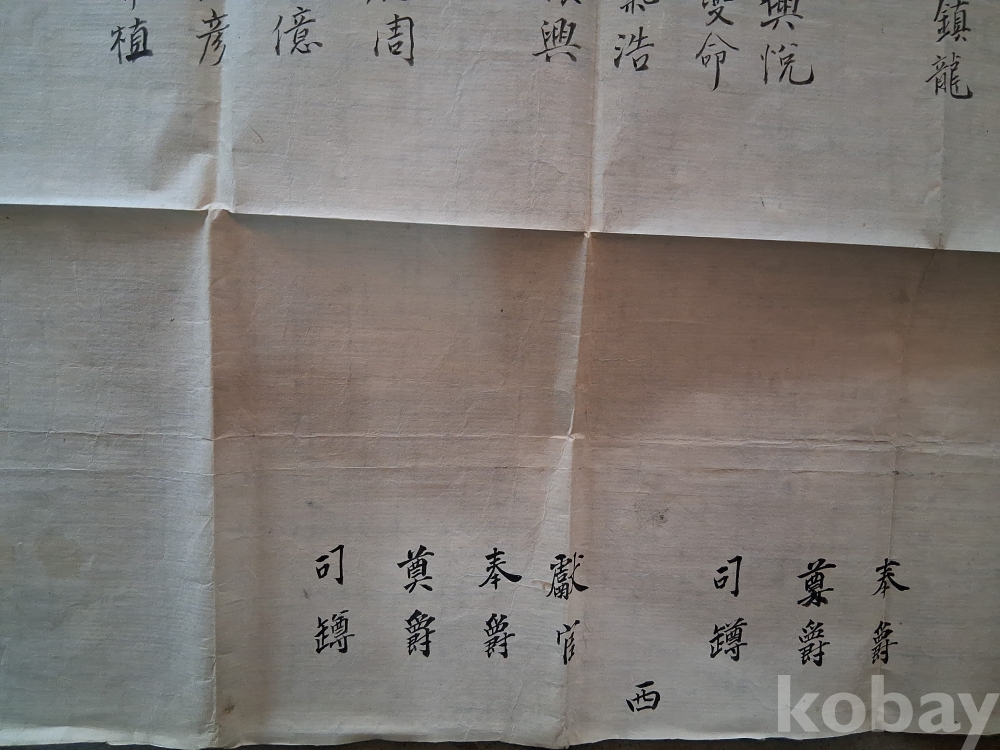 鎮龍
興悅
雙命
浩
興
周
億
彦
植
奉爵
奠爵
司罇
西
獻官
奉爵
奠爵
司罇
kobay